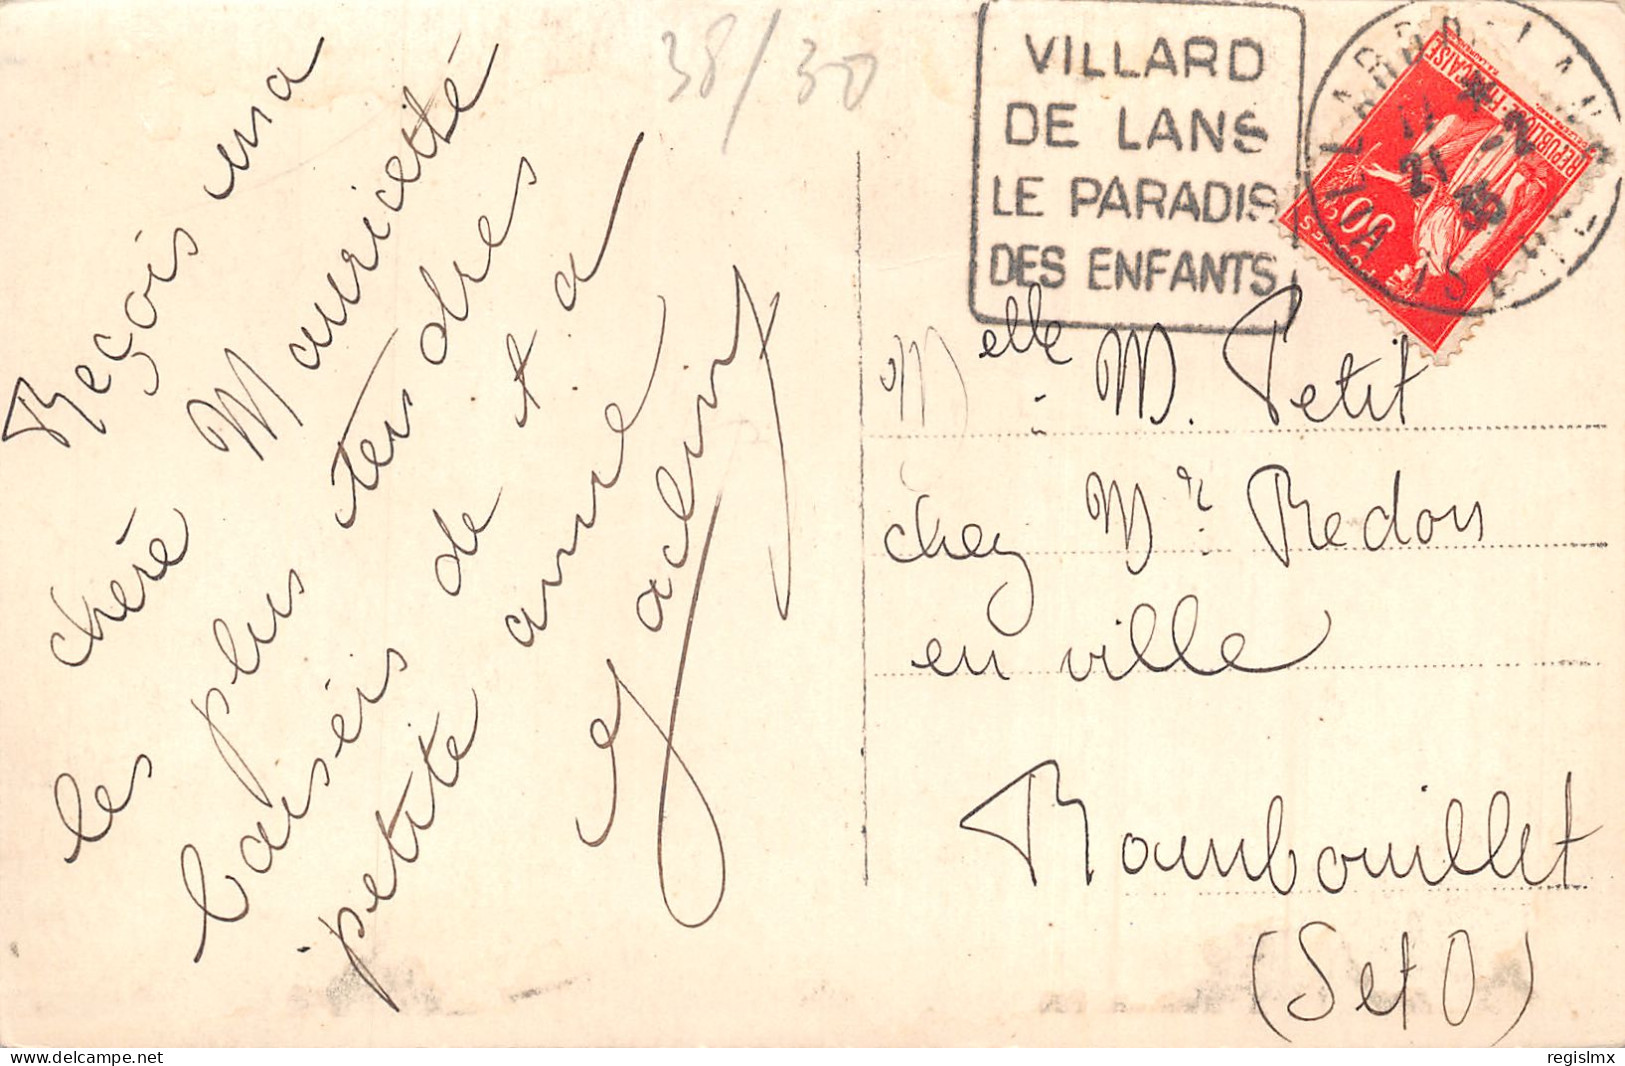 Reçois ma
chère Mauricette
les plus tendres
baiseis de ta
petite amie
Jacline
38/30
VILLARD
DE LANS
LE PARADIS
DES ENFANTS
VILLARD DE LANS
ISERE
11 * 2
21 35
REPUBLIQUE FRANÇAISE
POSTES
Melle M. Petit
chez Mr Redon
en ville
Rambouillet
(S et O)
delcampe.net
regislmx